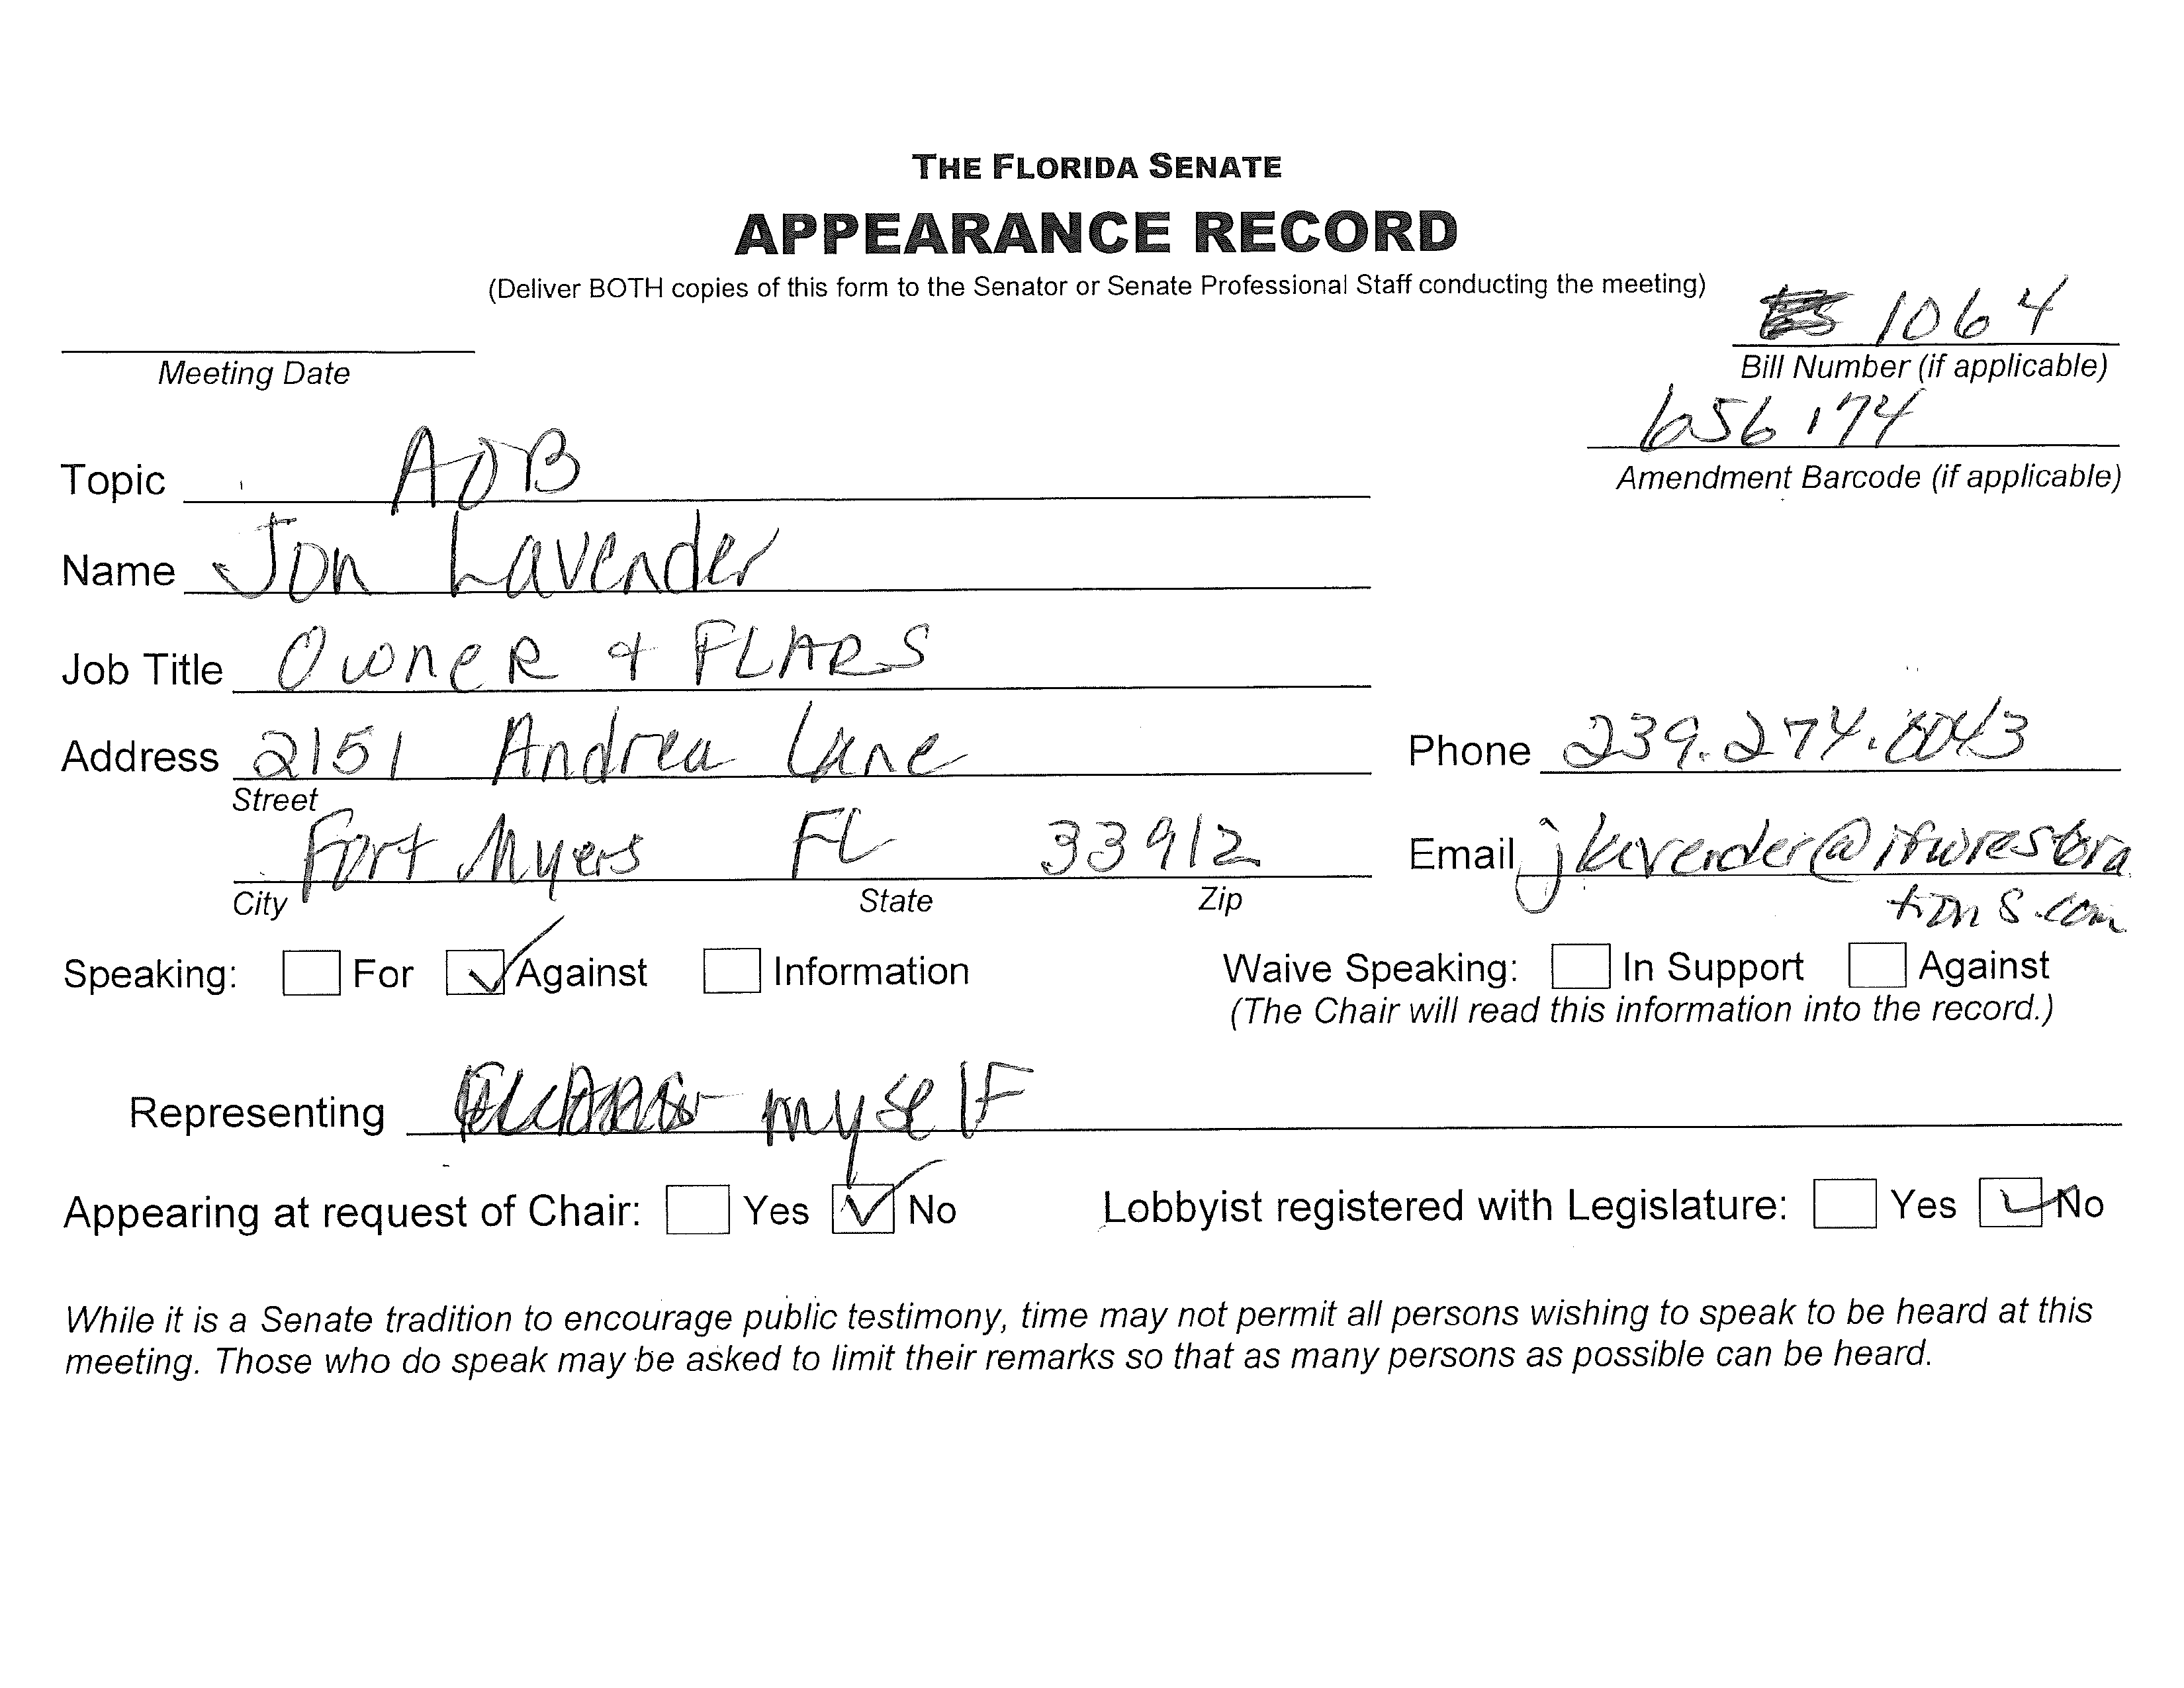 THE FLORIDA SENATE
APPEARANCE RECORD
(Deliver BOTH copies of this form to the Senator or Senate Professional Staff conducting the meeting)
1064
Meeting Date
Bill Number (if applicable)
656174
Amendment Barcode (if applicable)
Topic AOB
Name Jon Lavender
Job Title Owner + FLARS
Address 2151 Andrea Lane
Phone 239.274.
Street
Fort Myers FL 33912
Email
City State Zip
Speaking: For Against Information
Waive Speaking: In Support Against
(The Chair will read this information into the record.)
Representing myself
Appearing at request of Chair: Yes No
Lobbyist registered with Legislature: Yes No
While it is a Senate tradition to encourage public testimony, time may not permit all persons wishing to speak to be heard at this
meeting. Those who do speak may be asked to limit their remarks so that as many persons as possible can be heard.